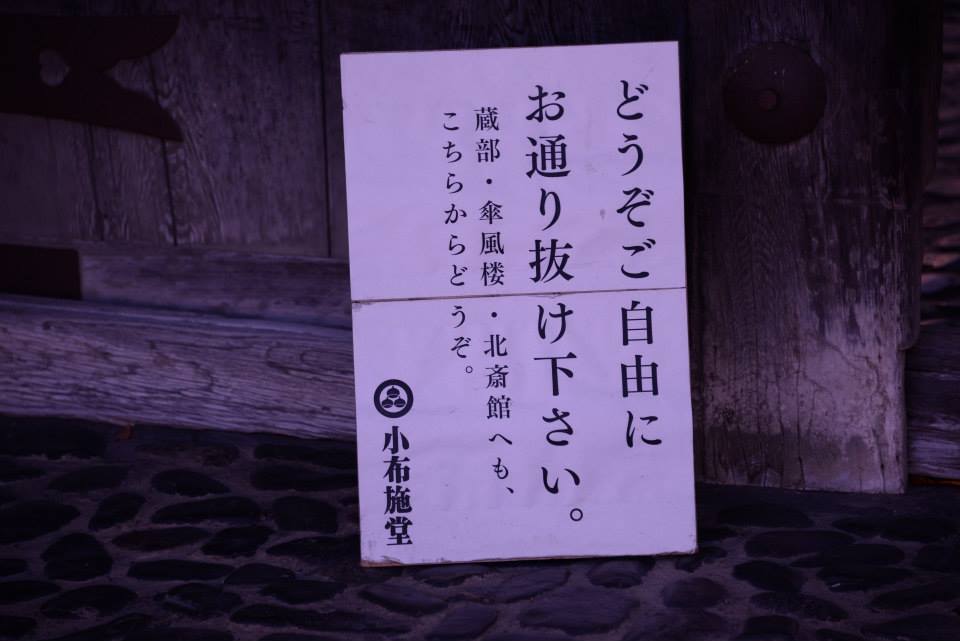 どうぞご自由に
お通り抜け下さい。
蔵部・傘風楼・北斎館へも、
こちらからどうぞ。
小布施堂